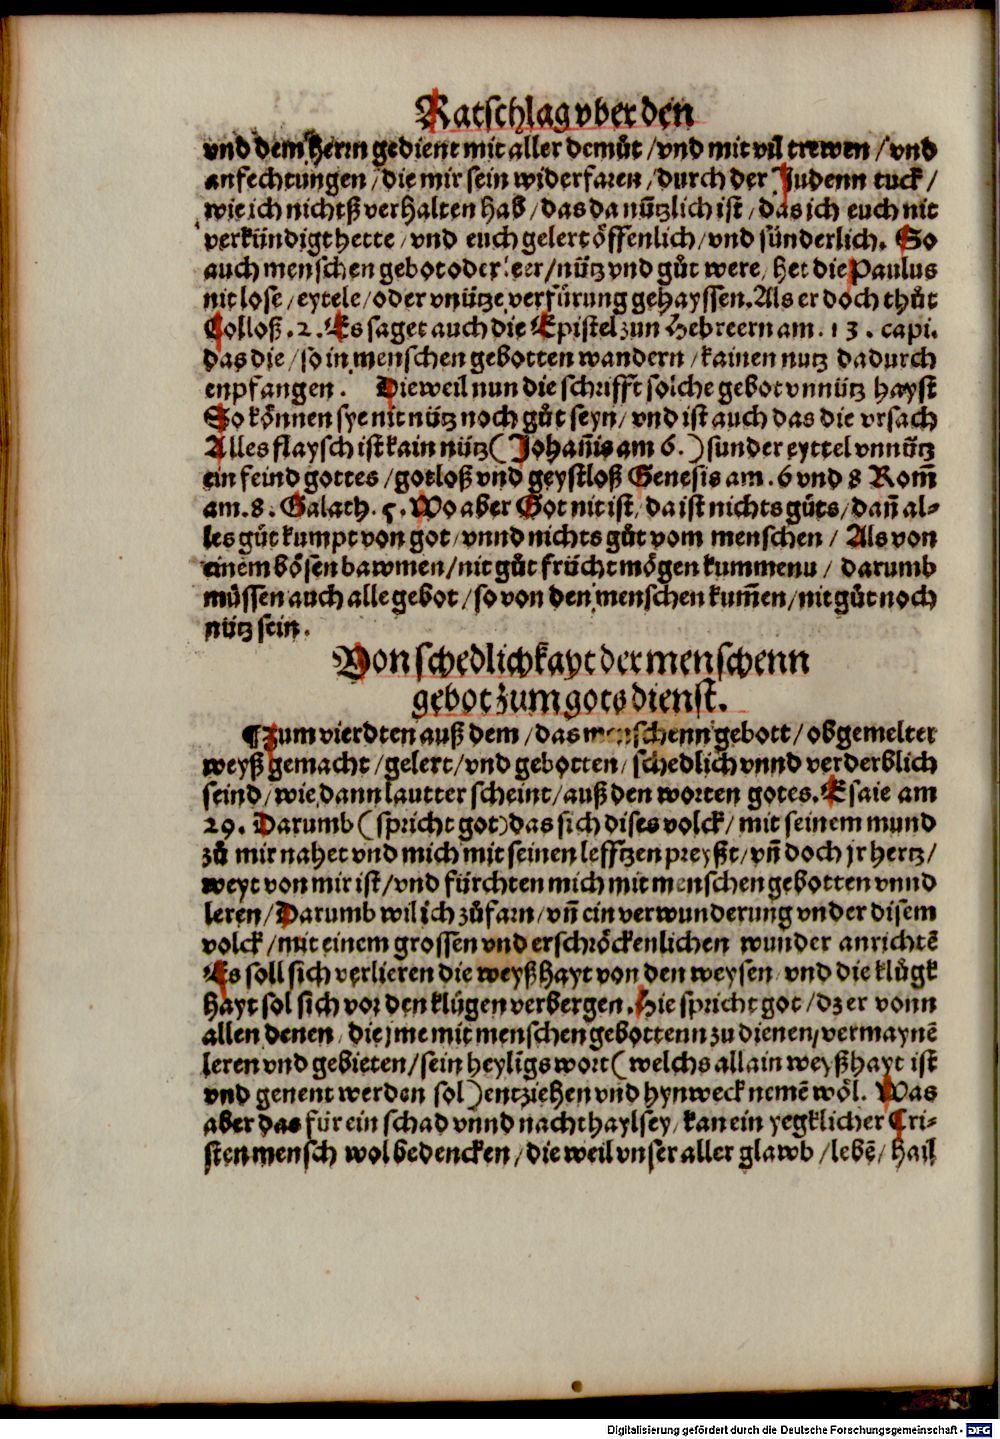 Ratschlag vber den
vnd dem herrn gedient mit aller demůt / vnd mit vil trewen / vnd
anfechtungen / die mir sein widerfaren / durch der Judenn tuck /
wie ich nichtß verhalten hab / das da nützlich ist / das ich euch nit
verkündigt hette / vnd euch gelert öffenlich / vnd sünderlich. So
auch menschen gebot oder leer / nütz vnd gůt were / het die Paulus
nit lose / eytele / oder vnütze verfürung gehayssen. Als er doch thůt
Colloß .2. Es saget auch die Epistel zun Hebreern am .13. capi.
das die / so in menschen gebotten wandern / kainen nutz dadurch
enpfangen. Dieweil nun die schrifft solche gebot vnnütz hayst
So können sye nit nütz noch gůt seyn / vnd ist auch das die vrsach
Alles flaysch ist kain nütz (Johañis am 6.) sunder eyttel vnnütz
ein feind gottes / gotloß vnd geystloß Genesis am .6 vnd 8 Rom̃
am .8. Galath. 5. Wo aber Got nit ist / da ist nichts gůts / dañ al⸗
les gůt kumpt von got / vnnd nichts gůt vom menschen / Als von
einem bösen bawmen / nit gůt frücht mögen kummenn / darumb
müssen auch alle gebot / so von den menschen kum̃en / nit gůt noch
nütz sein.
Von schedlichkayt der menschenn
gebot zum gots dienst.
¶ Zum vierdten auß dem / das menschenn gebott / obgemelter
weyß gemacht / gelert / vnd gebotten / schedlich vnnd verderblich
seind / wie dann lautter scheint / auß den worten gotes. Esaie am
29. Darumb (spricht got) das sich dises volck / mit seinem mund
zů mir nahet vnd mich mit seinen lefftzen preyßt / vñ doch jr hertz /
weyt von mir ist / vnd fürchten mich mit menschen gebotten vnnd
leren / Darumb wil ich zůfarn / vñ ein verwunderung vnder disem
volck / mit einem grossen vnd erschröckenlichen wunder anrichtẽ
Es soll sich verlieren die weyßhayt von den weysen / vnd die klůgk
hayt sol sich vor den klůgen verbergen. Hie spricht got / dz er vonn
allen denen / die jme mit menschen gebottenn zu dienen / vermaynẽ
leren vnd gebieten / sein heyligs wort (welchs allain weyßhayt ist
vnd genent werden sol) entziehen vnd hynweck nemẽ wöl. Was
aber das für ein schad vnnd nachthayl sey / kan ein yegklicher Cri⸗
sten mensch wol bedencken / die weil vnser aller glawb / lebẽ / hail
Digitalisierung gefördert durch die Deutsche Forschungsgemeinschaft - DFG